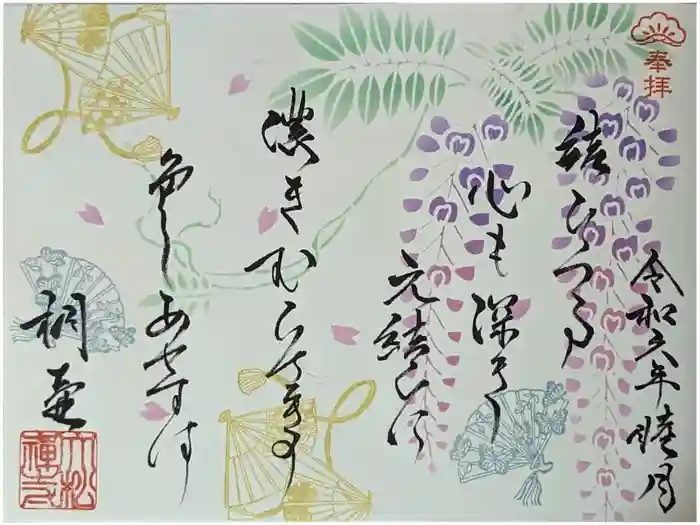 奉拝
令和六年睦月
結びつる
心も深き
元結ひに
濃きむらさきの
色しあせずは
桐壺
大松禅寺